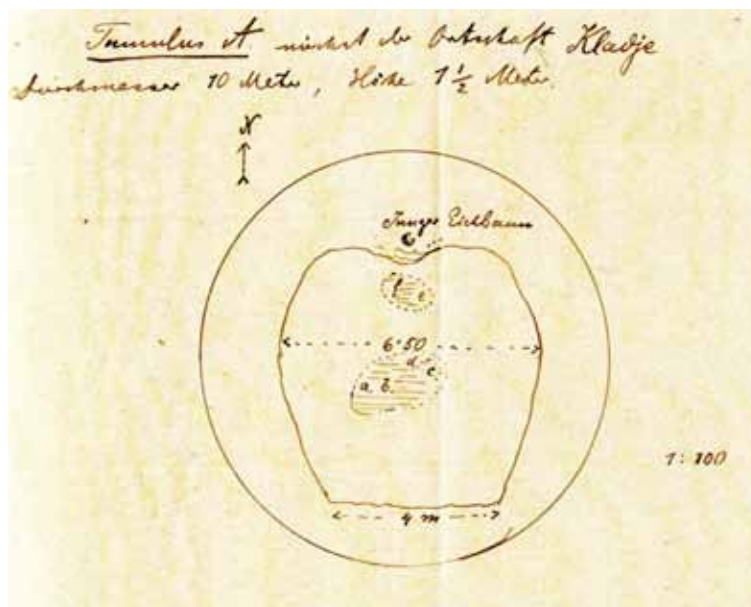 Tumulus A. nächst der Ortschaft Kladje
Durchmesser 10 Meter, Höhe 1 1/2 Meter.
N
Junger Eichbaum
f e
6·50
d.
c.
a. b.
1:100
4 m